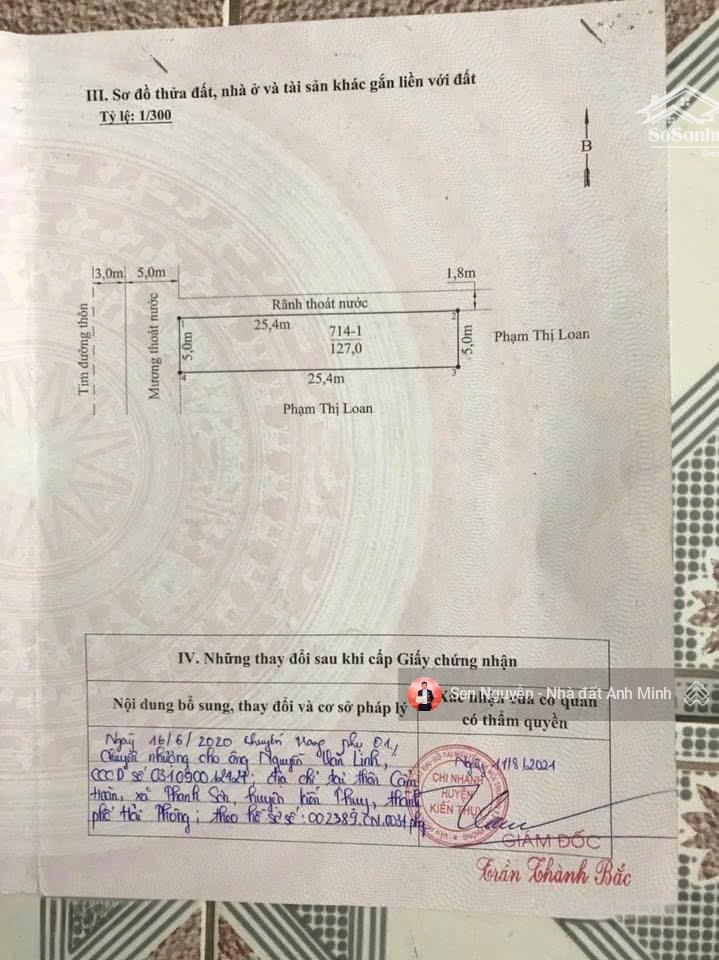 III. Sơ đồ thửa đất, nhà ở và tài sản khác gắn liền với đất
Tỷ lệ: 1/300
SoSanh
B
3,0m
5,0m
1,8m
Rãnh thoát nước
1
2
25,4m
714-1
127,0
5,0m
5,0m
Phạm Thị Loan
Tim đường thôn
Mương thoát nước
4
3
25,4m
Phạm Thị Loan
IV. Những thay đổi sau khi cấp Giấy chứng nhận
Nội dung bổ sung, thay đổi và cơ sở pháp lý
Xác nhận của cơ quan
có thẩm quyền
Sen Nguyễn - Nhà đất Anh Minh
Ngày 16/6/2020 chuyển trang phụ 01,
Chuyển nhượng cho ông Nguyễn Văn Linh,
CCCD số địa chỉ tại thôn Cẩm
Hoàn, xã Thanh Sơn, huyện Kiến Thụy, thành
phố Hải Phòng; theo hồ sơ số: 002389.CN.003
Ngày 11/8/2021
CHI NHÁNH
HUYỆN
KIẾN THỤY
GIÁM ĐỐC
Trần Thành Bắc